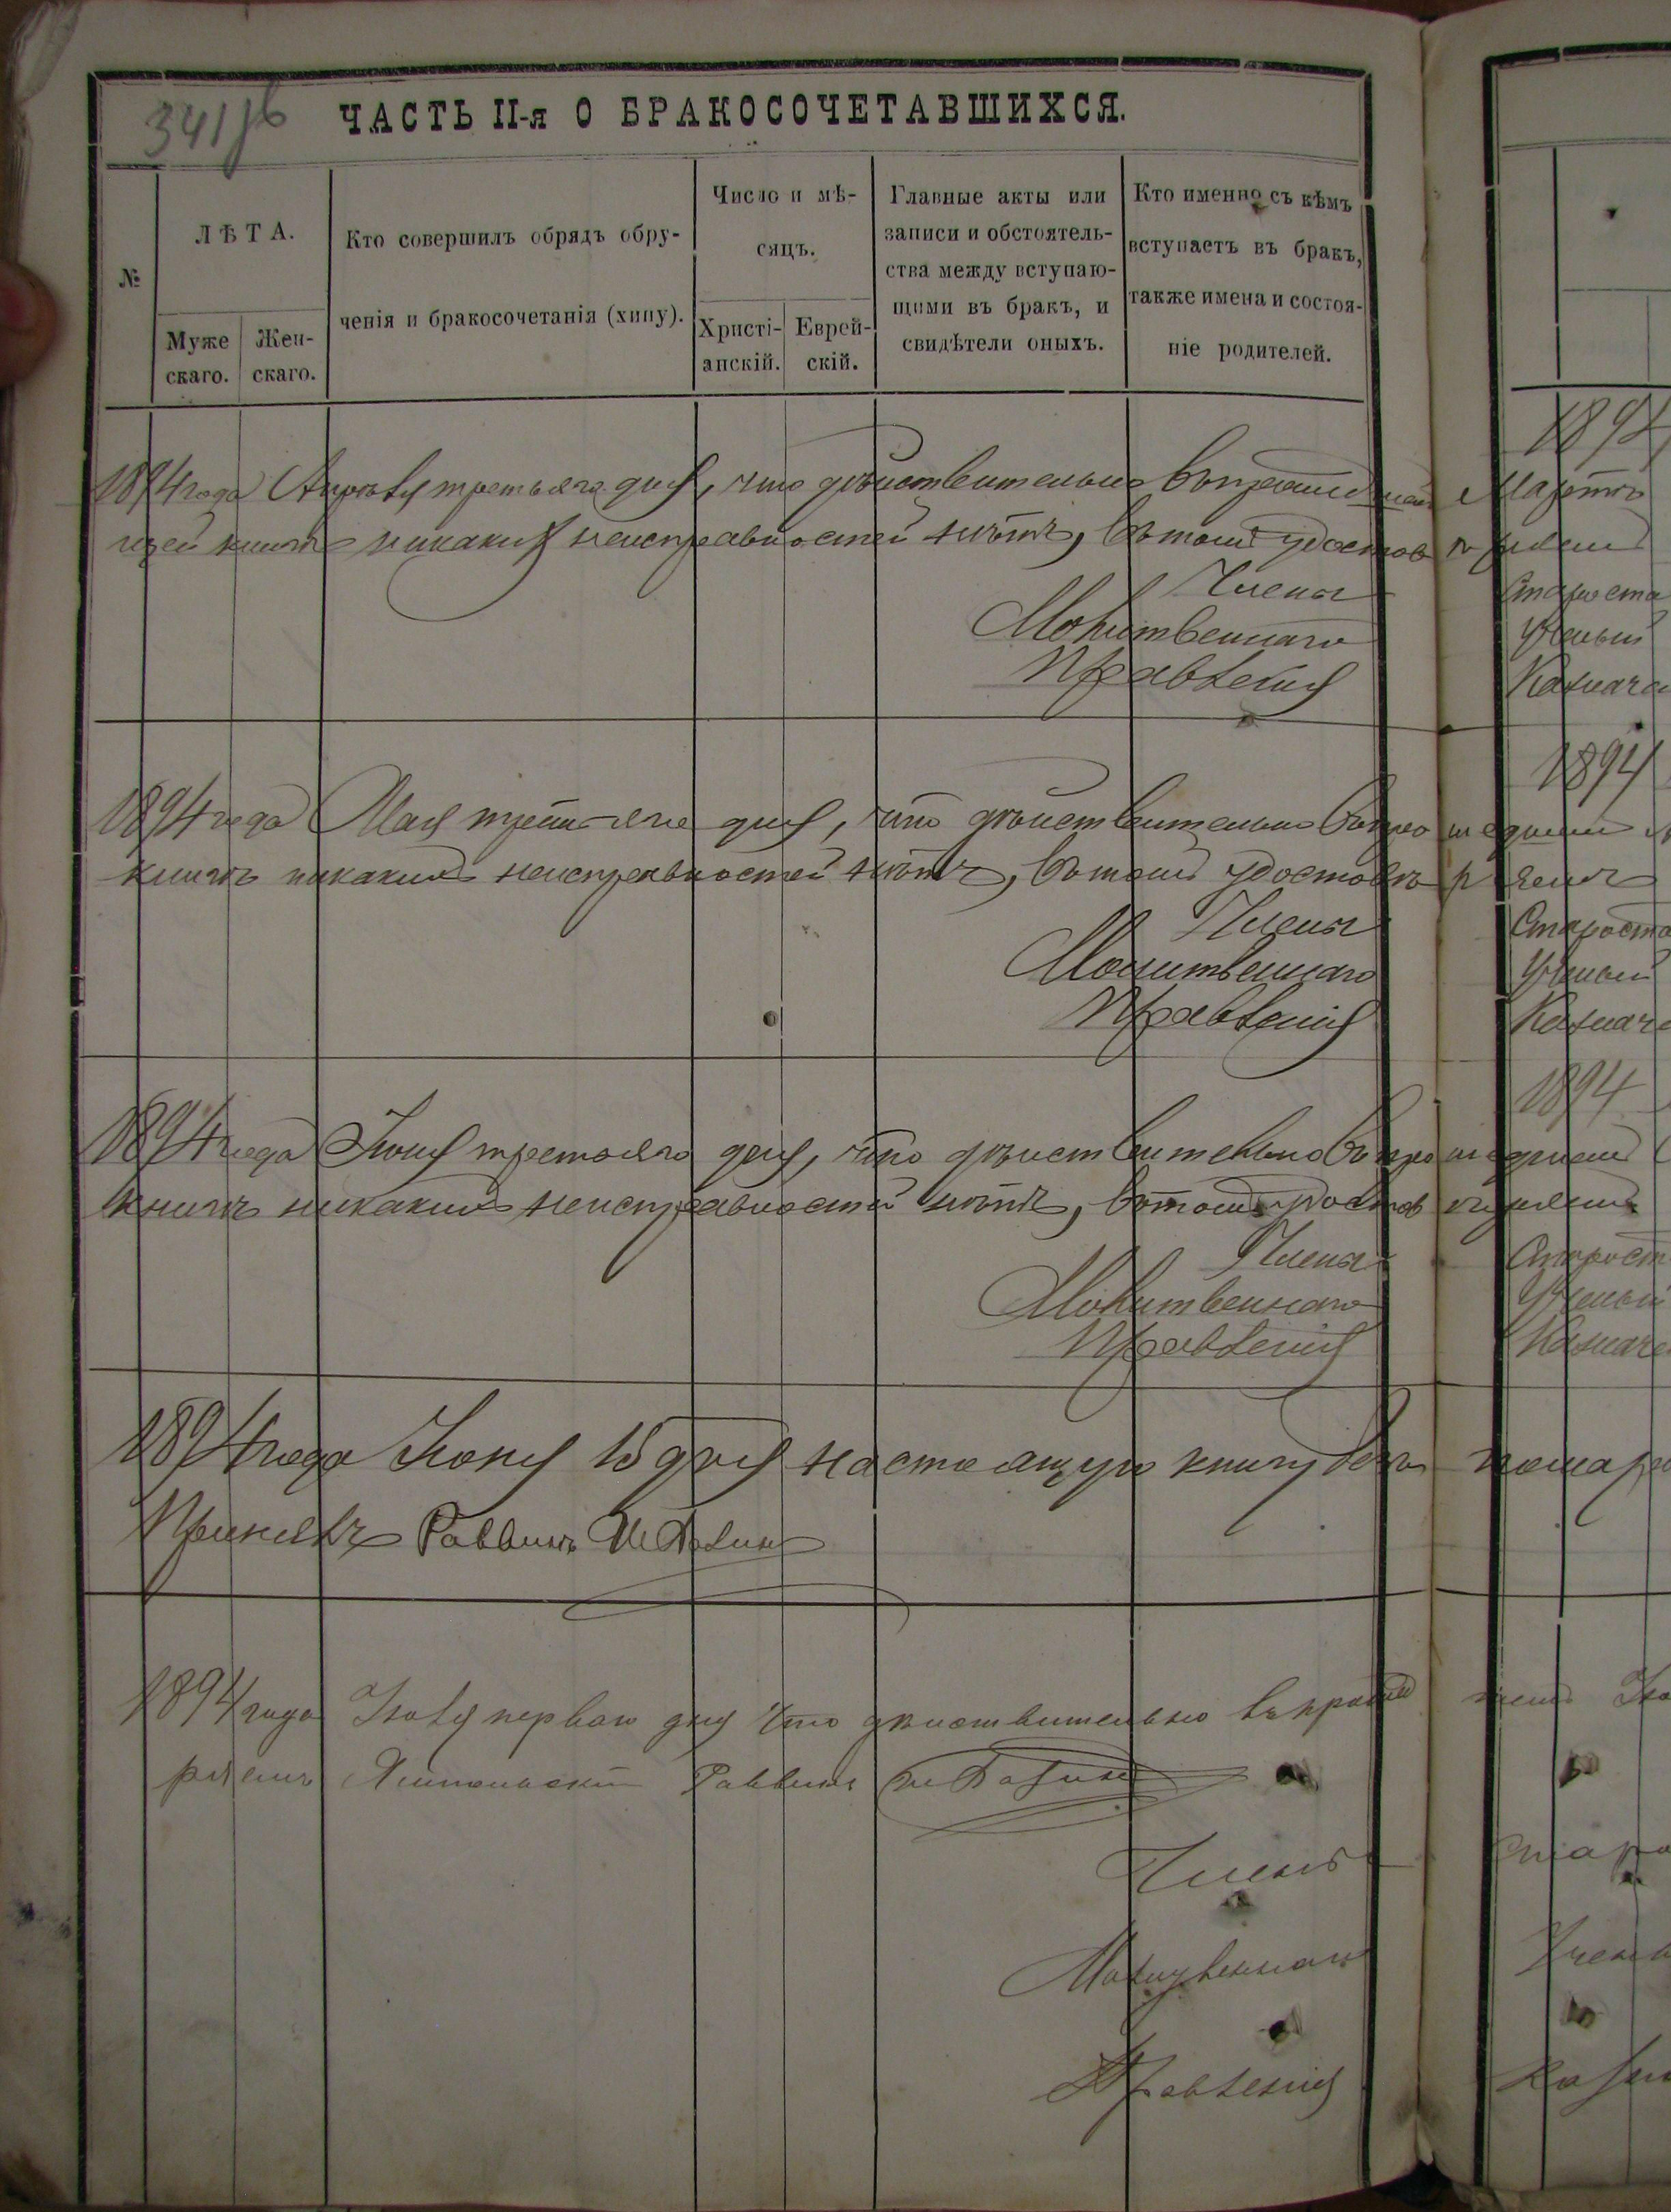 341об
ЧАСТЬ II-я О БРАКОСОЧЕТАВШИХСЯ.
№
ЛѢТА.
Муже
скаго.
Жен-
скаго.
Кто совершилъ обрядъ обру-
ченія и бракосочетанія (хипу).
Число и мѣ-
сяцъ.
Христі-
анскій.
Еврей-
скій.
Главные акты или
записи и обстоятель-
ства между вступаю-
щими въ бракъ, и
свидѣтели оныхъ.
Кто именно съ кѣмъ
вступаетъ въ бракъ,
также имена и состоя-
ніе родителей.
1894 года Апрѣля третьяго дня, что дѣйствительно Мартѣ
книгѣ никаких неисправностей нѣтъ, въ томъ удостовѣряемъ
Члены Староста
Молитвеннаго Ученый
Правленія Казначе
1894
1894 года Мая третьяго дня, что дѣйствительно въ прошедшемъ
книгѣ никакихъ неисправностей нѣтъ, въ томъ удостовѣряемъ
Члены Староста
Молитвеннаго Ученый
Правленія Казначе
1894
1894 года Іюня третьяго дня, что дѣйствительно въ прошедшемъ
книгѣ никакихъ неисправностей нѣтъ, въ томъ удостовѣряемъ
Члены Старост
Молитвеннаго Ученый
Правленія Казначе
1894 года Іюня 15 дня настоящую книгу
Принялъ Раввинъ
1894 года Іюля перваго дня что дѣйствительно въ прошед
ряемъ Раввинъ
Члены Старо
Молитвеннаго Учены
Правленія Казн